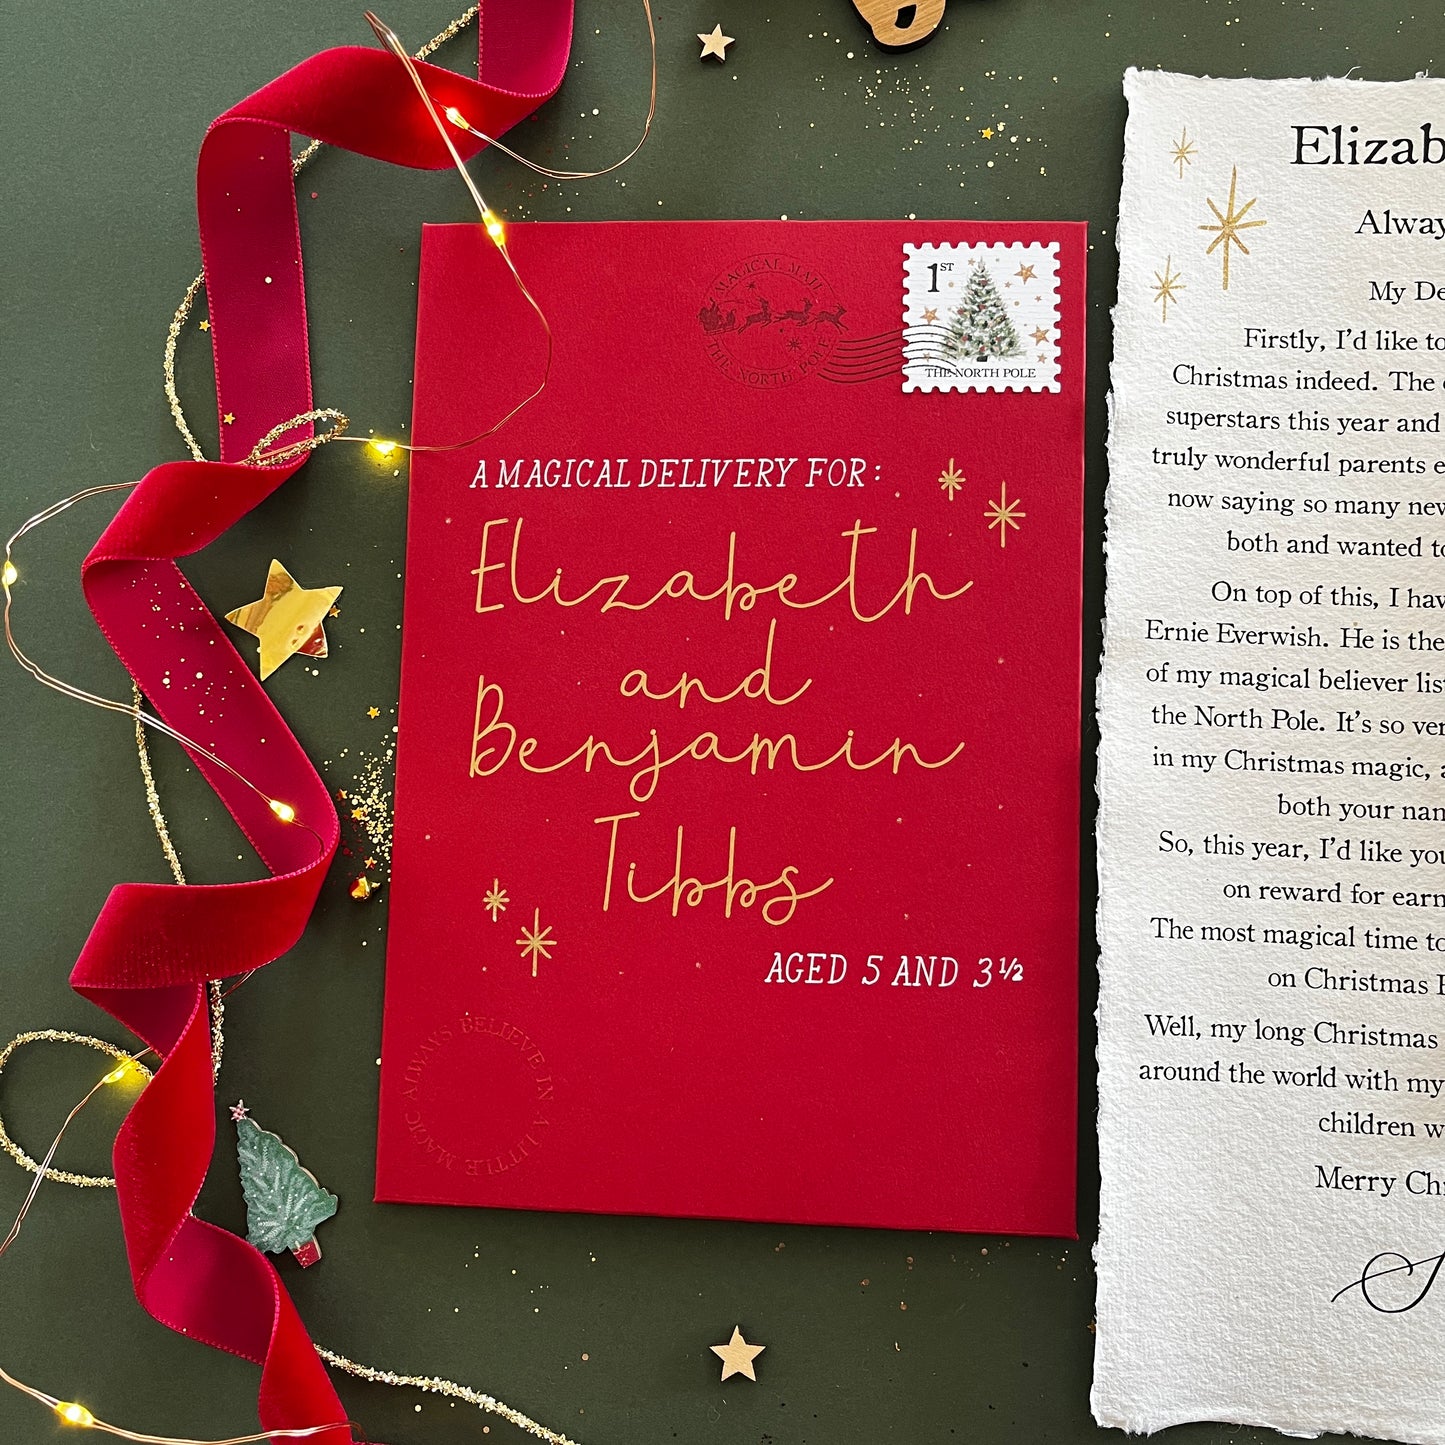 MAGICAL MAIL
THE NORTH POLE
1ST
THE NORTH POLE
A MAGICAL DELIVERY FOR:
Elizabeth
and
Benjamin
Tibbs
AGED 5 AND 3½
ALWAYS BELIEVE IN A LITTLE MAGIC
Elizab
Alway
My De
Firstly, I'd like to
Christmas indeed. The
superstars this year and
truly wonderful parents e
now saying so many new
both and wanted to
On top of this, I hav
Ernie Everwish. He is the
of my magical believer list
the North Pole. It's so ver
in my Christmas magic, a
both your nam
So, this year, I'd like you
on reward for earn
The most magical time to
on Christmas E
Well, my long Christmas
around the world with my
children w
Merry Chr